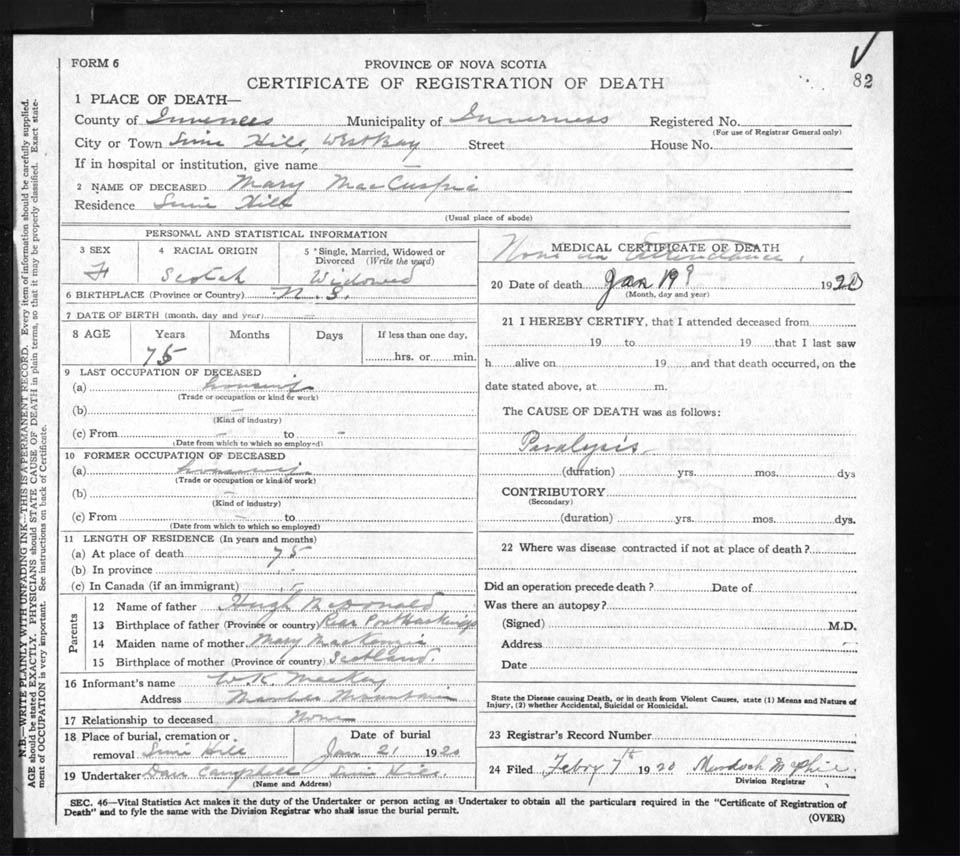 FORM 6
PROVINCE OF NOVA SCOTIA
82
CERTIFICATE OF REGISTRATION OF DEATH
1 PLACE OF DEATH—
County of Inverness Municipality of Inverness Registered No.
(For use of Registrar General only)
City or Town Hill, West Bay Street House No.
If in hospital or institution, give name —
2 NAME OF DECEASED Mary MacCuspic
Residence Hill
(Usual place of abode)
PERSONAL AND STATISTICAL INFORMATION
3 SEX 4 RACIAL ORIGIN 5 *Single, Married, Widowed or Divorced (Write the word)
F Scotch Widowed
6 BIRTHPLACE (Province or Country) N.S.
7 DATE OF BIRTH (month, day and year)
8 AGE Years Months Days If less than one day,
75 hrs. or min.
9 LAST OCCUPATION OF DECEASED
(a) housewife
(Trade or occupation or kind of work)
(b) —
(Kind of industry)
(c) From — to -
(Date from which to which so employed)
10 FORMER OCCUPATION OF DECEASED
(a) housewife
(Trade or occupation or kind of work)
(b) —
(Kind of industry)
(c) From — to
(Date from which to which so employed)
11 LENGTH OF RESIDENCE (In years and months)
(a) At place of death 75
(b) In province
(c) In Canada (if an immigrant)
Parents
12 Name of father Hugh McDonald
13 Birthplace of father (Province or country) Rear Port Hastings
14 Maiden name of mother Mary MacKenzie
15 Birthplace of mother (Province or country) Scotland.
16 Informant's name W.K. MacKay
Address Marble Mountain
17 Relationship to deceased None
18 Place of burial, cremation or removal Hill
Date of burial Jan 21 1920
19 Undertaker Dan Campbell
(Name and Address)
MEDICAL CERTIFICATE OF DEATH
None in Attendance.
20 Date of death Jan 19? 1920
(Month, day and year)
21 I HEREBY CERTIFY, that I attended deceased from
19 to 19 that I last saw
h alive on 19 and that death occurred, on the
date stated above, at m.
The CAUSE OF DEATH was as follows:
Paralysis
(duration) yrs. mos. dys
CONTRIBUTORY
(Secondary)
(duration) yrs. mos. dys.
22 Where was disease contracted if not at place of death?
Did an operation precede death? Date of
Was there an autopsy?
(Signed) M.D.
Address
Date
State the Disease causing Death, or in death from Violent Causes, state (1) Means and Nature of
Injury, (2) whether Accidental, Suicidal or Homicidal.
23 Registrar's Record Number
24 Filed Febry 7th 1920 Murdoch McPhie.
Division Registrar
SEC. 46—Vital Statistics Act makes it the duty of the Undertaker or person acting as Undertaker to obtain all the particulars required in the "Certificate of Registration of
Death" and to fyle the same with the Division Registrar who shall issue the burial permit.
(OVER)
N.B.—WRITE PLAINLY WITH UNFADING INK—THIS IS A PERMANENT RECORD. Every item of information should be carefully supplied.
AGE should be stated EXACTLY. PHYSICIANS should STATE CAUSE OF DEATH in plain terms, so that it may be properly classified. Exact state-
ment of OCCUPATION is very important. See instructions on back of Certificate.